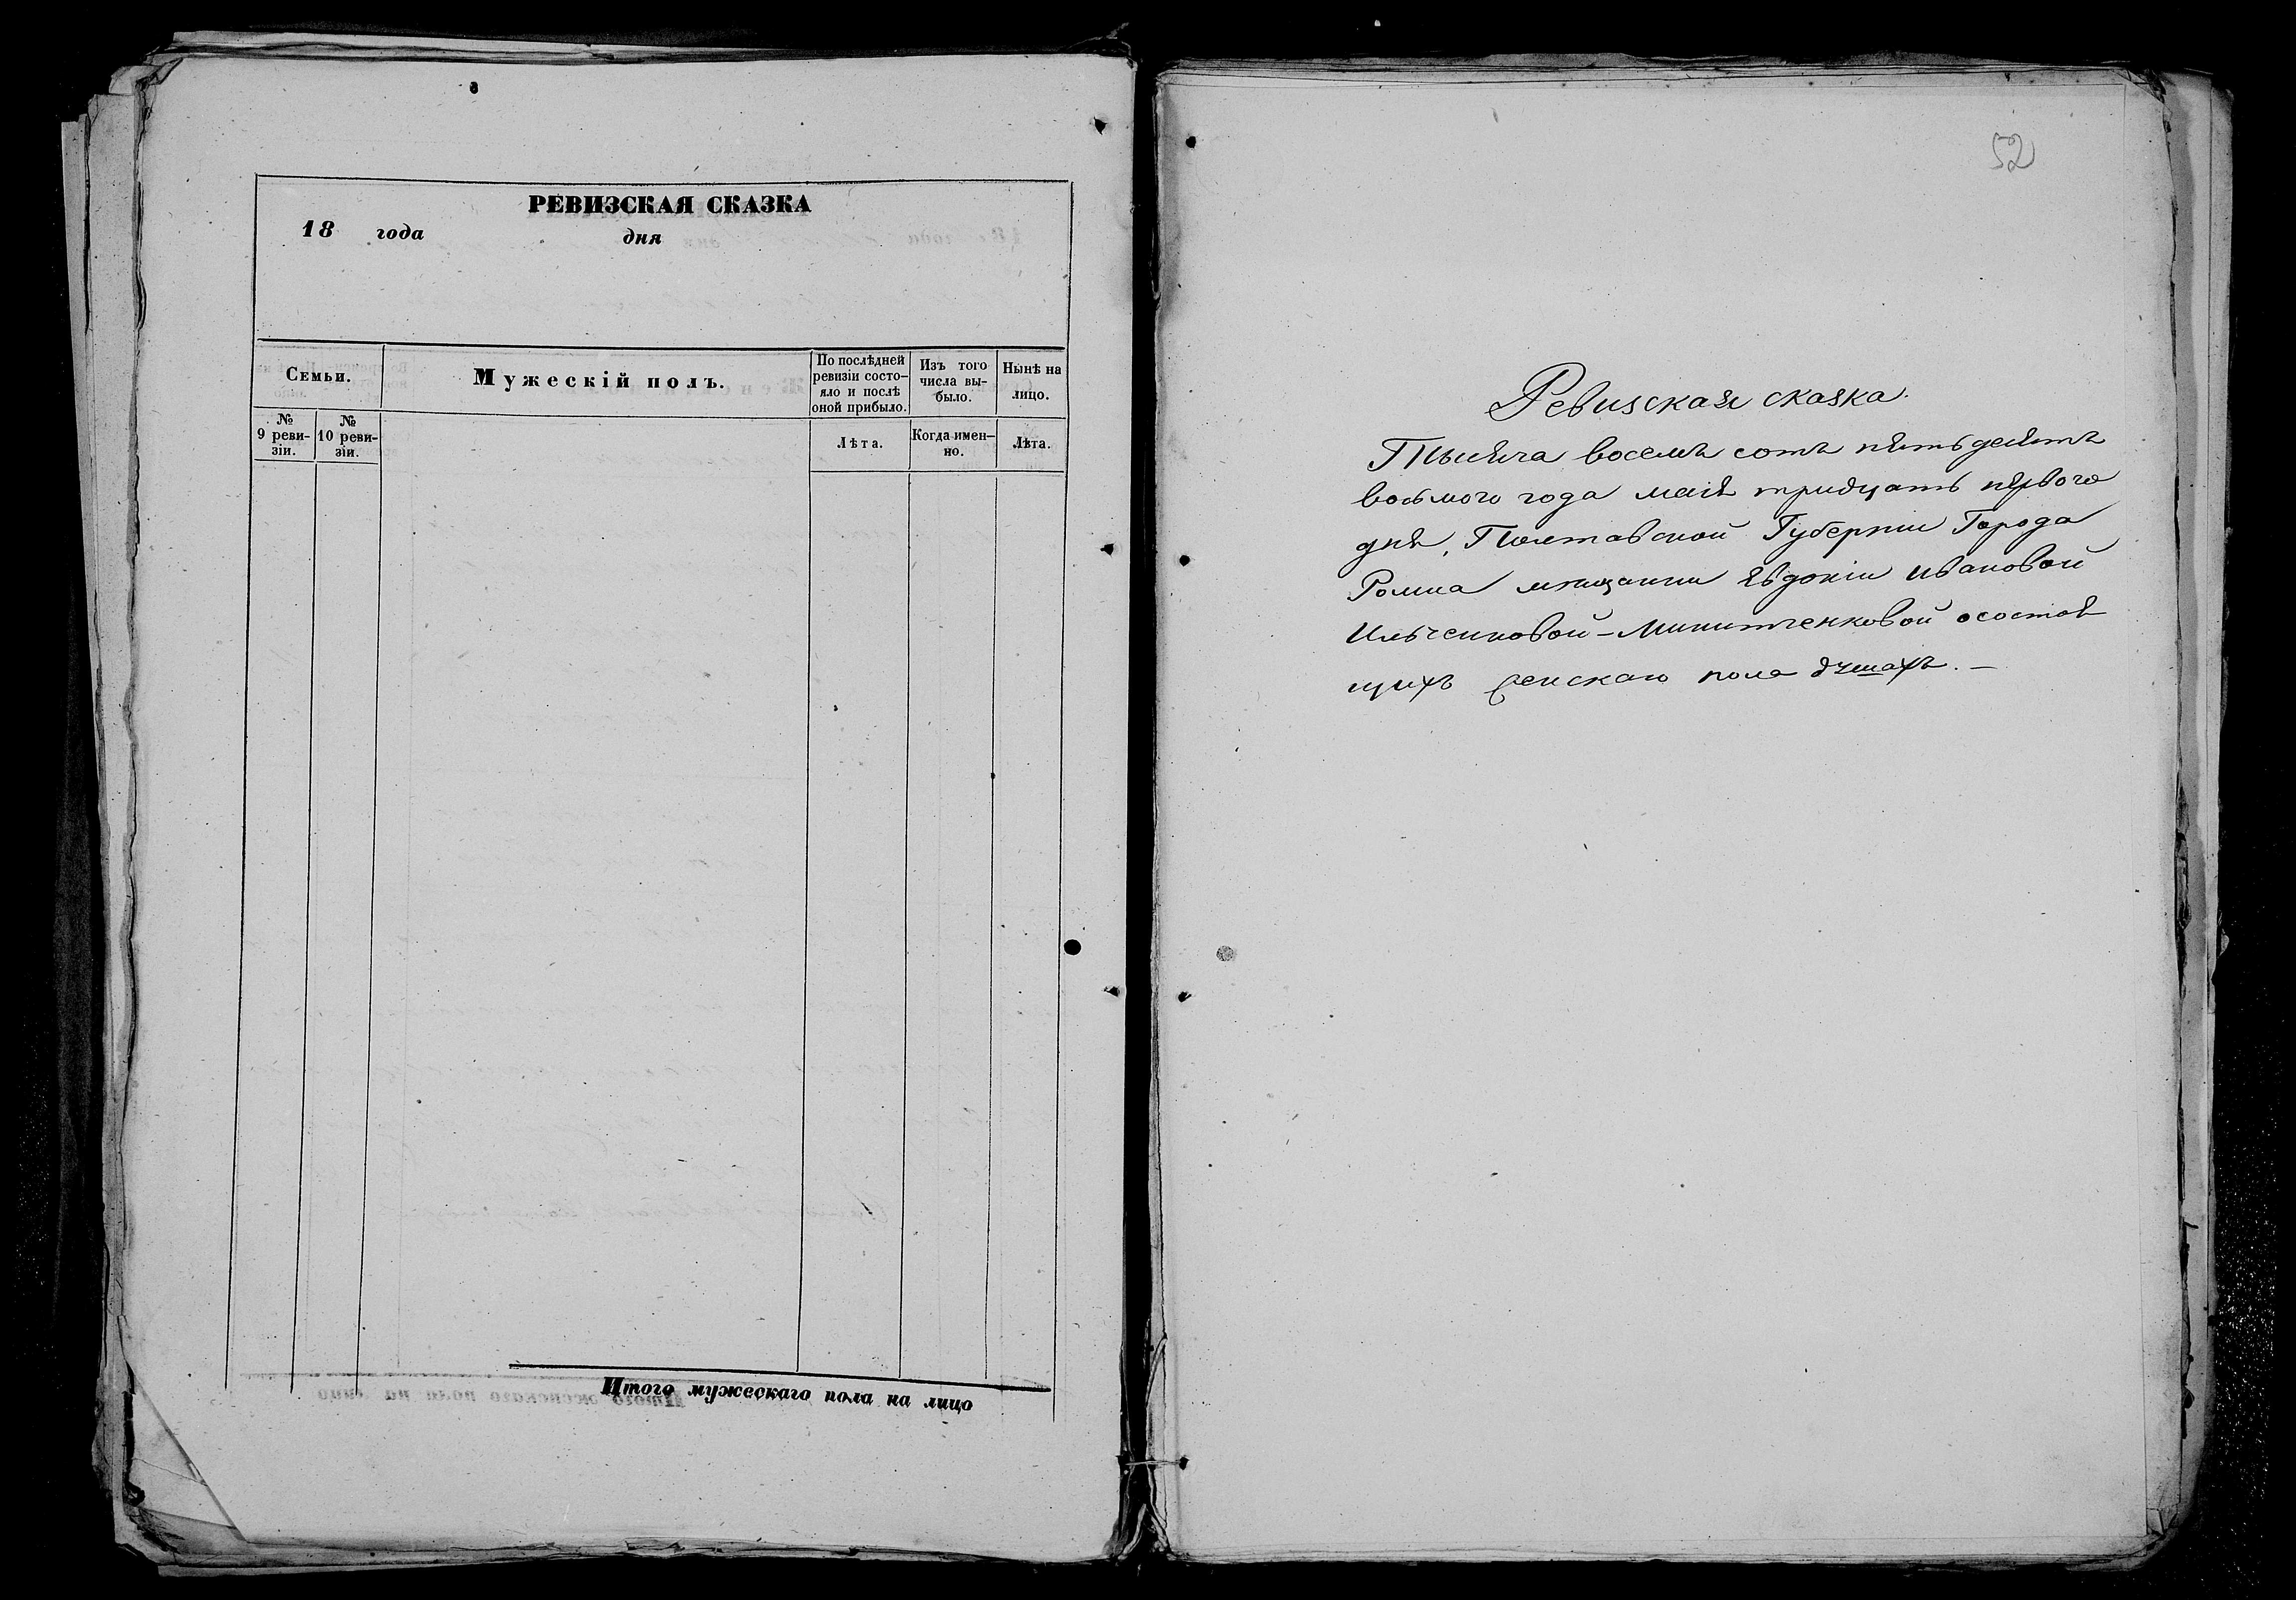 РЕВИЗСКАЯ СКАЗКА
18 года дня
Семьи.
Мужескій полъ.
По послѣдней
ревизіи состо-
яло и послѣ
оной прибыло.
Изъ того
числа вы-
было.
Нынѣ на
лицо.
№
9 реви-
зіи.
№
10 реви-
зіи.
Лѣта.
Когда имен-
но.
Лѣта.
Итого мужескаго пола на лицо
52
Ревизская сказка.
Тысяча восемъ сотъ пятьдесятъ
восьмого года мая тридцать первого
дня, Полтавской Губерніи Города
Ромна мѣщанки Евдокіи Ивановой
Ильченковой-Микитченковой о состоя
щихъ женскаго пола душахъ. —